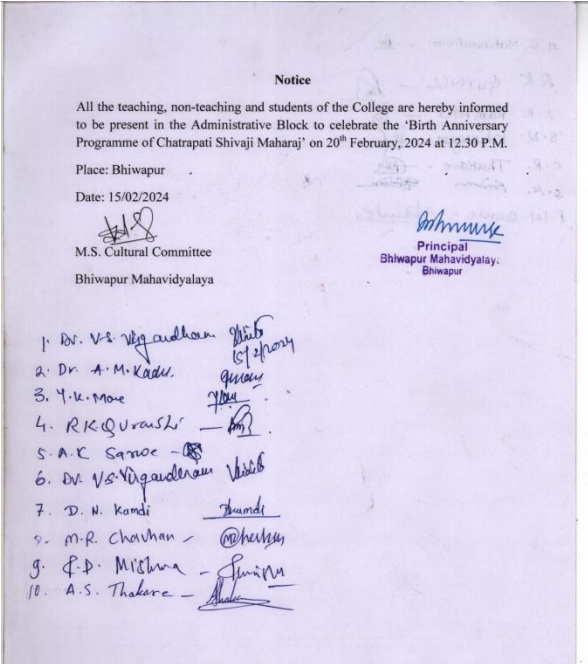 Notice
All the teaching, non-teaching and students of the College are hereby informed
to be present in the Administrative Block to celebrate the ‘Birth Anniversary
Programme of Chatrapati Shivaji Maharaj’ on 20th February, 2024 at 12.30 P.M.
Place: Bhiwapur
Date: 15/02/2024
M.S. Cultural Committee
Bhiwapur Mahavidyalaya
Principal
Bhiwapur Mahavidyalay.
Bhiwapur
1. Dr. V.S.
15/2/2024
2. Dr. A.M.
3. Y.K. More
4. R.K. Quraishi
5. A.K.
6. Dr. V.S.
7. D. N. Kamdi
M.R. Chavhan -
9. Mishra -
10. A.S. Thakare -